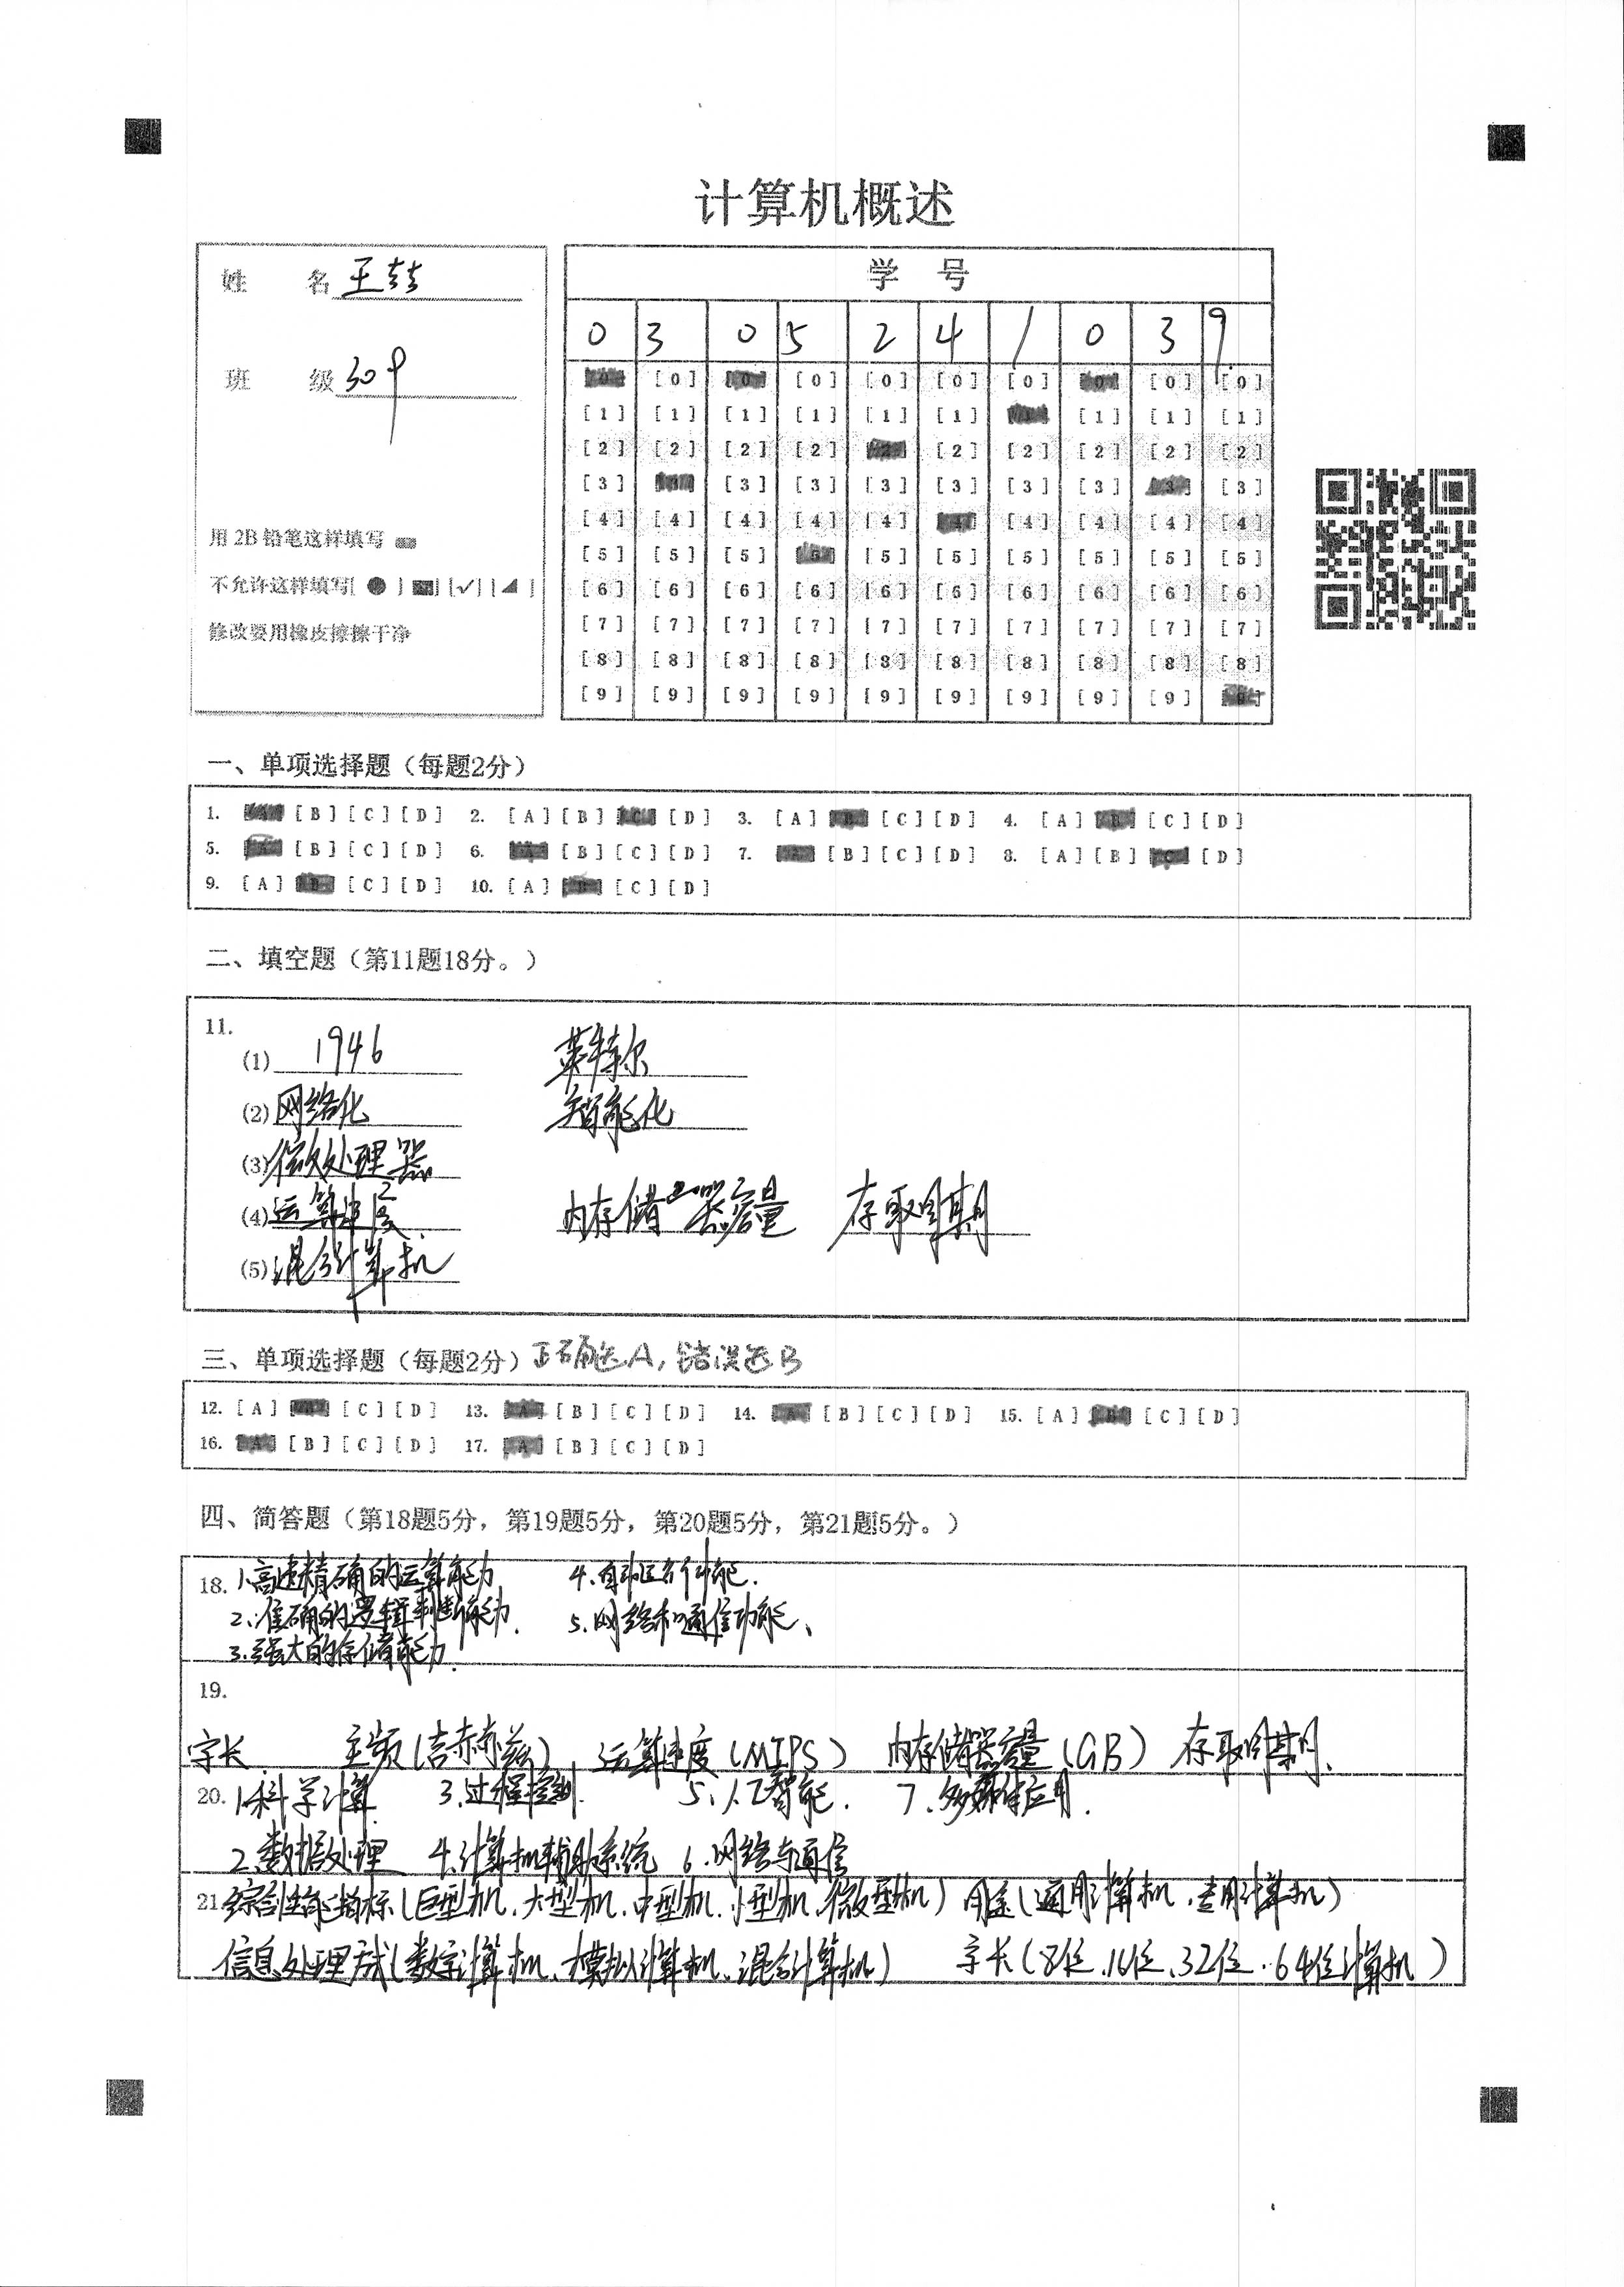 计算机概述
姓 名 王喆喆
班 级 309
用 2B 铅笔这样填写
不允许这样填写[ ● ] [▬] [✓] [◢ ]
修改要用橡皮擦擦干净
学 号
0 3 0 5 2 4 1 0 3 9
[0] [0] [0] [0] [0] [0] [0] [0] [0] [0]
[1] [1] [1] [1] [1] [1] [1] [1] [1] [1]
[2] [2] [2] [2] [2] [2] [2] [2] [2] [2]
[3] [3] [3] [3] [3] [3] [3] [3] [3] [3]
[4] [4] [4] [4] [4] [4] [4] [4] [4] [4]
[5] [5] [5] [5] [5] [5] [5] [5] [5] [5]
[6] [6] [6] [6] [6] [6] [6] [6] [6] [6]
[7] [7] [7] [7] [7] [7] [7] [7] [7] [7]
[8] [8] [8] [8] [8] [8] [8] [8] [8] [8]
[9] [9] [9] [9] [9] [9] [9] [9] [9] [9]
一、单项选择题（每题2分）
1. [A] [B] [C] [D] 2. [A] [B] [C] [D] 3. [A] [B] [C] [D] 4. [A] [B] [C] [D]
5. [A] [B] [C] [D] 6. [A] [B] [C] [D] 7. [A] [B] [C] [D] 8. [A] [B] [C] [D]
9. [A] [B] [C] [D] 10. [A] [B] [C] [D]
二、填空题（第11题18分。）
11.
(1) 1946 英特尔
(2) 网络化 智能化
(3) 微处理器
(4) 运算速度 内存储器容量 存取周期
(5) 混合计算机
三、单项选择题（每题2分）正确选A，错误选B
12. [A] [B] [C] [D] 13. [A] [B] [C] [D] 14. [A] [B] [C] [D] 15. [A] [B] [C] [D]
16. [A] [B] [C] [D] 17. [A] [B] [C] [D]
四、简答题（第18题5分，第19题5分，第20题5分，第21题5分。）
18. 1.高速精确的运算能力 4.自动运行功能.
2.准确的逻辑判断能力. 5.网络和通信功能、
3.强大的存储能力.
19.
字长 主频(吉赫兹) 运算速度(MIPS) 内存储器容量(GB) 存取周期、
20. 1.科学计算 3.过程控制. 5.人工智能. 7.多媒体应用.
2.数据处理 4.计算机辅助系统 6.网络与通信
21. 综合性能指标(巨型机、大型机、中型机、小型机、微型机) 用途(通用计算机、专用计算机)
信息处理方式(数字计算机、模拟计算机、混合计算机) 字长(8位、16位、32位、64位计算机)